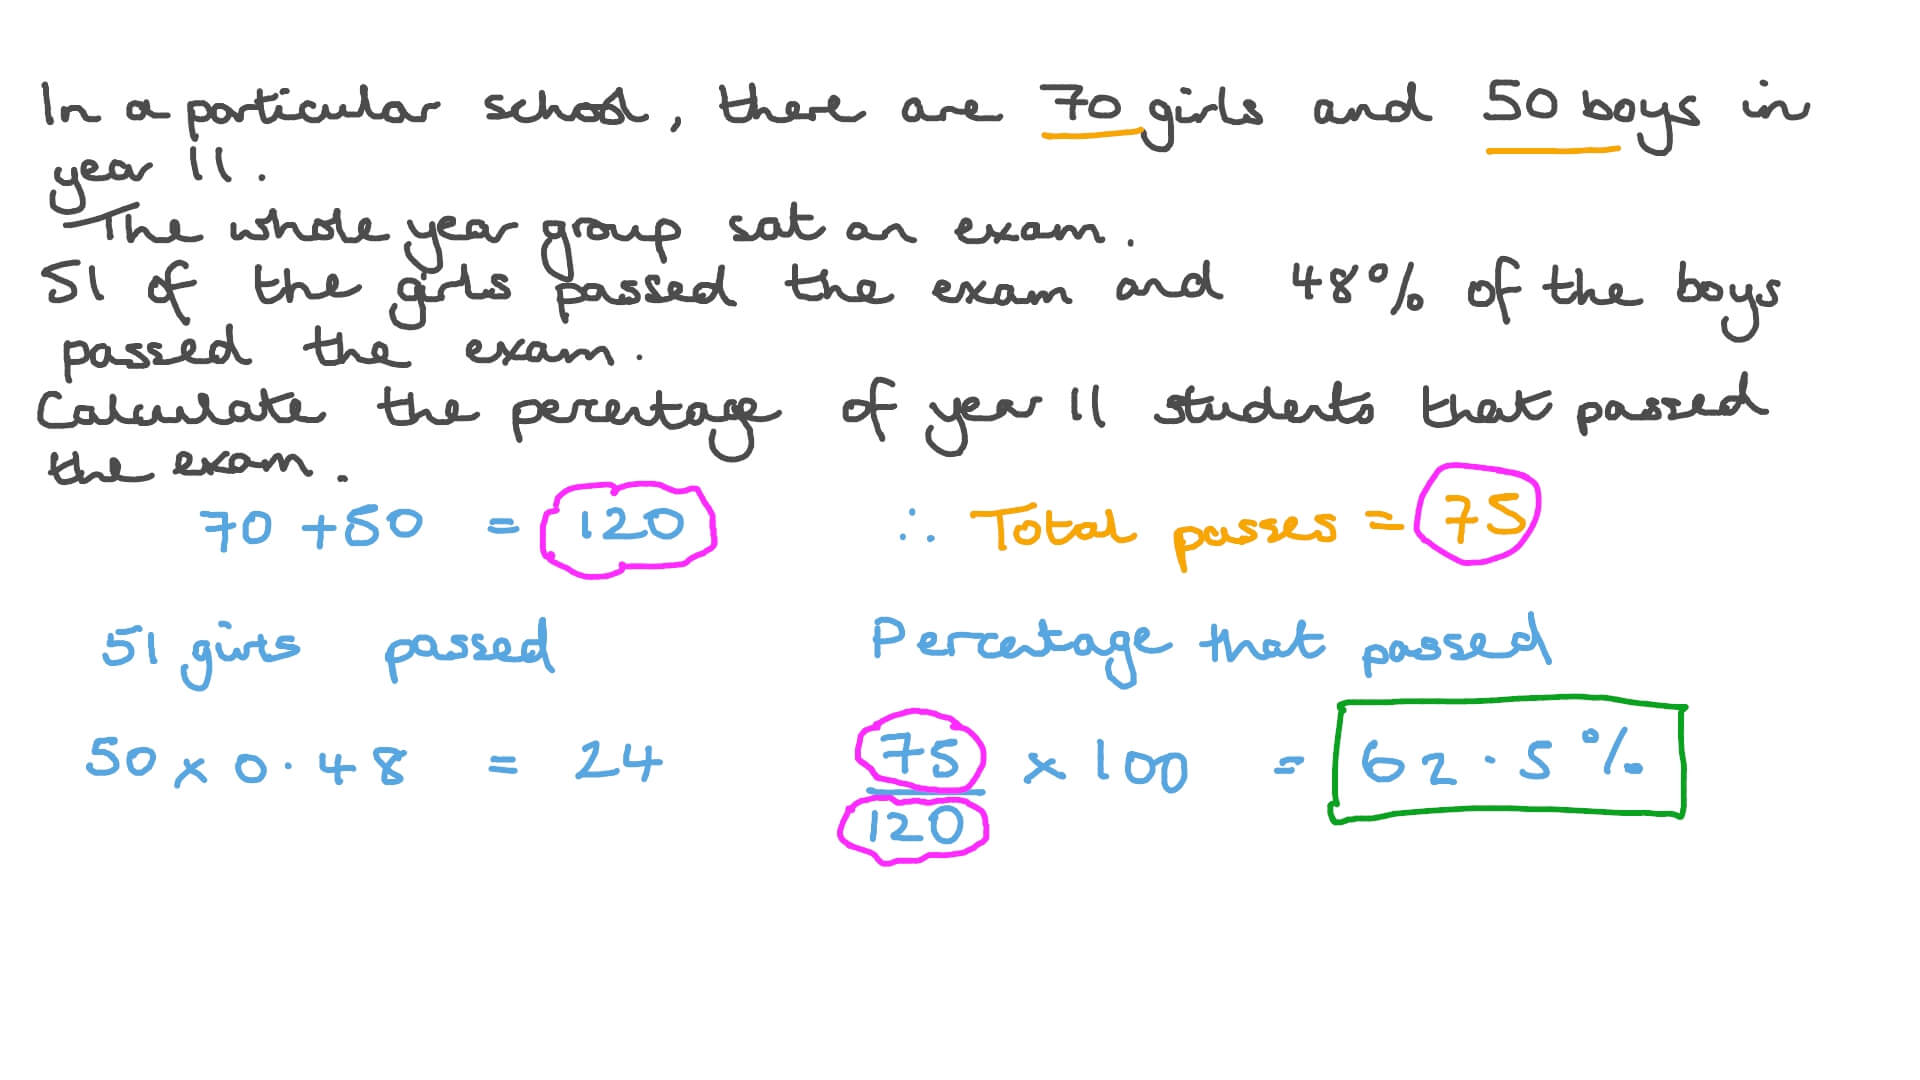 In a particular school, there are 70 girls and 50 boys in
year 11.
The whole year group sat an exam.
51 of the girls passed the exam and 48% of the boys
passed the exam.
Calculate the percentage of year 11 students that passed
the exam.
70 + 50 = 120
51 girls passed
50 x 0.48 = 24
∴ Total passes = 75
Percentage that passed
75/120 x 100 = 62.5%